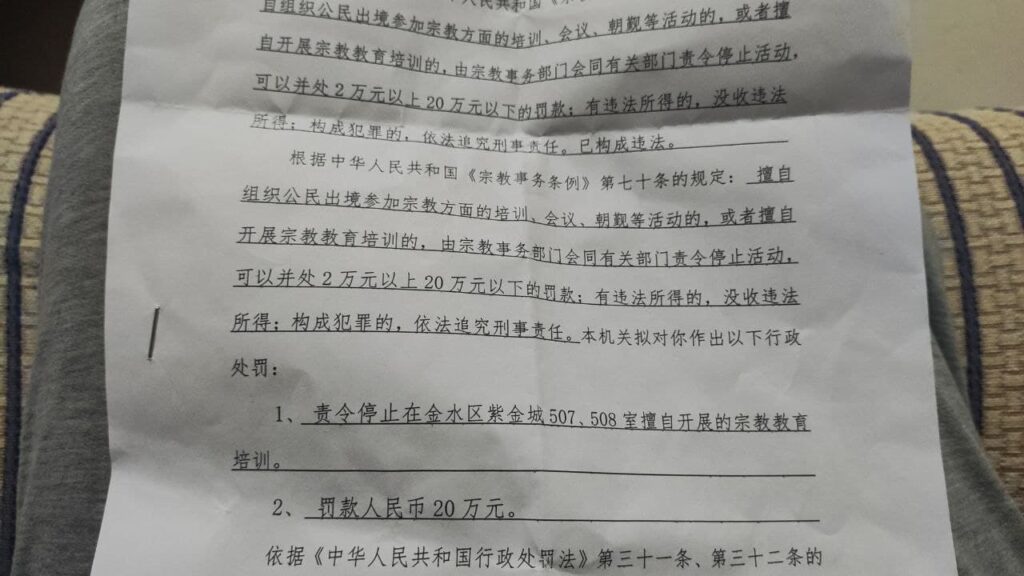 人民共和国《宗
自组织公民出境参加宗教方面的培训、会议、朝觐等活动的，或者擅
自开展宗教教育培训的，由宗教事务部门会同有关部门责令停止活动，
可以并处2万元以上20万元以下的罚款；有违法所得的，没收违法
所得；构成犯罪的，依法追究刑事责任。已构成违法。
根据中华人民共和国《宗教事务条例》第七十条的规定：擅自
组织公民出境参加宗教方面的培训、会议、朝觐等活动的，或者擅自
开展宗教教育培训的，由宗教事务部门会同有关部门责令停止活动，
可以并处2万元以上20万元以下的罚款；有违法所得的，没收违法
所得；构成犯罪的，依法追究刑事责任。本机关拟对你作出以下行政
处罚：
1、责令停止在金水区紫金城507、508室擅自开展的宗教教育
培训。
2、罚款人民币20万元。
依据《中华人民共和国行政处罚法》第三十一条、第三十二条的